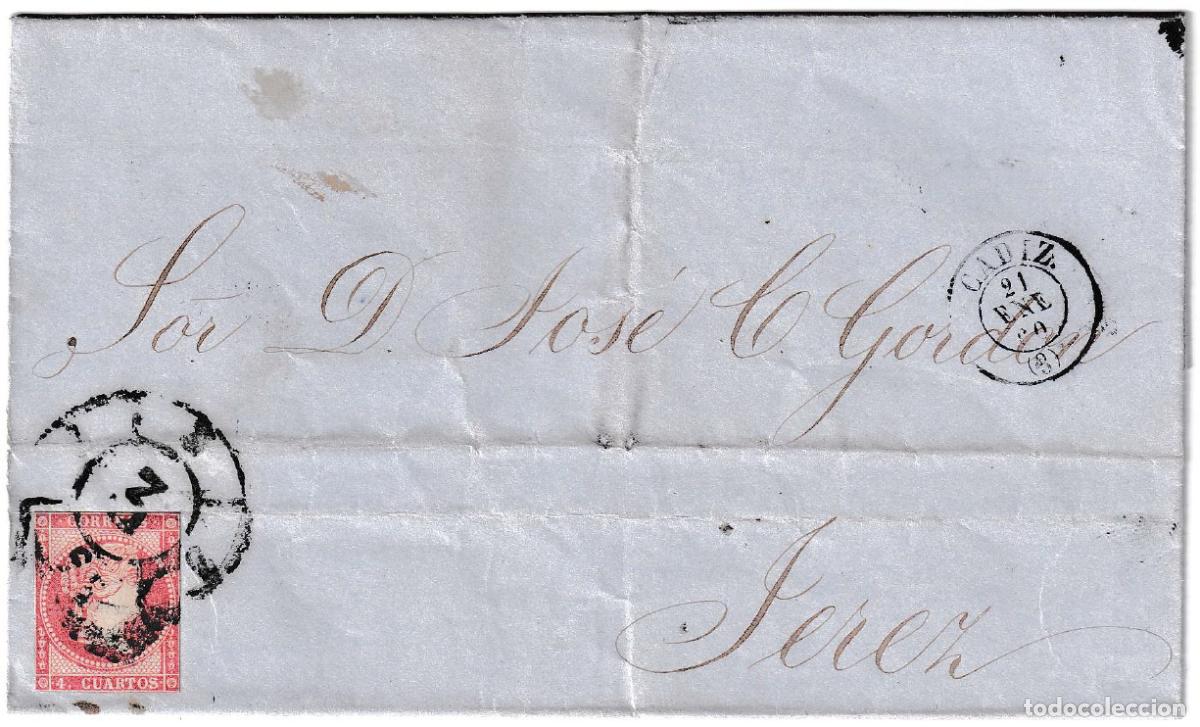 Sor D José C Gordon
CADIZ.
21
ENE
60
(3)
CORREOS
4. CUARTOS
Jerez
todocoleccion